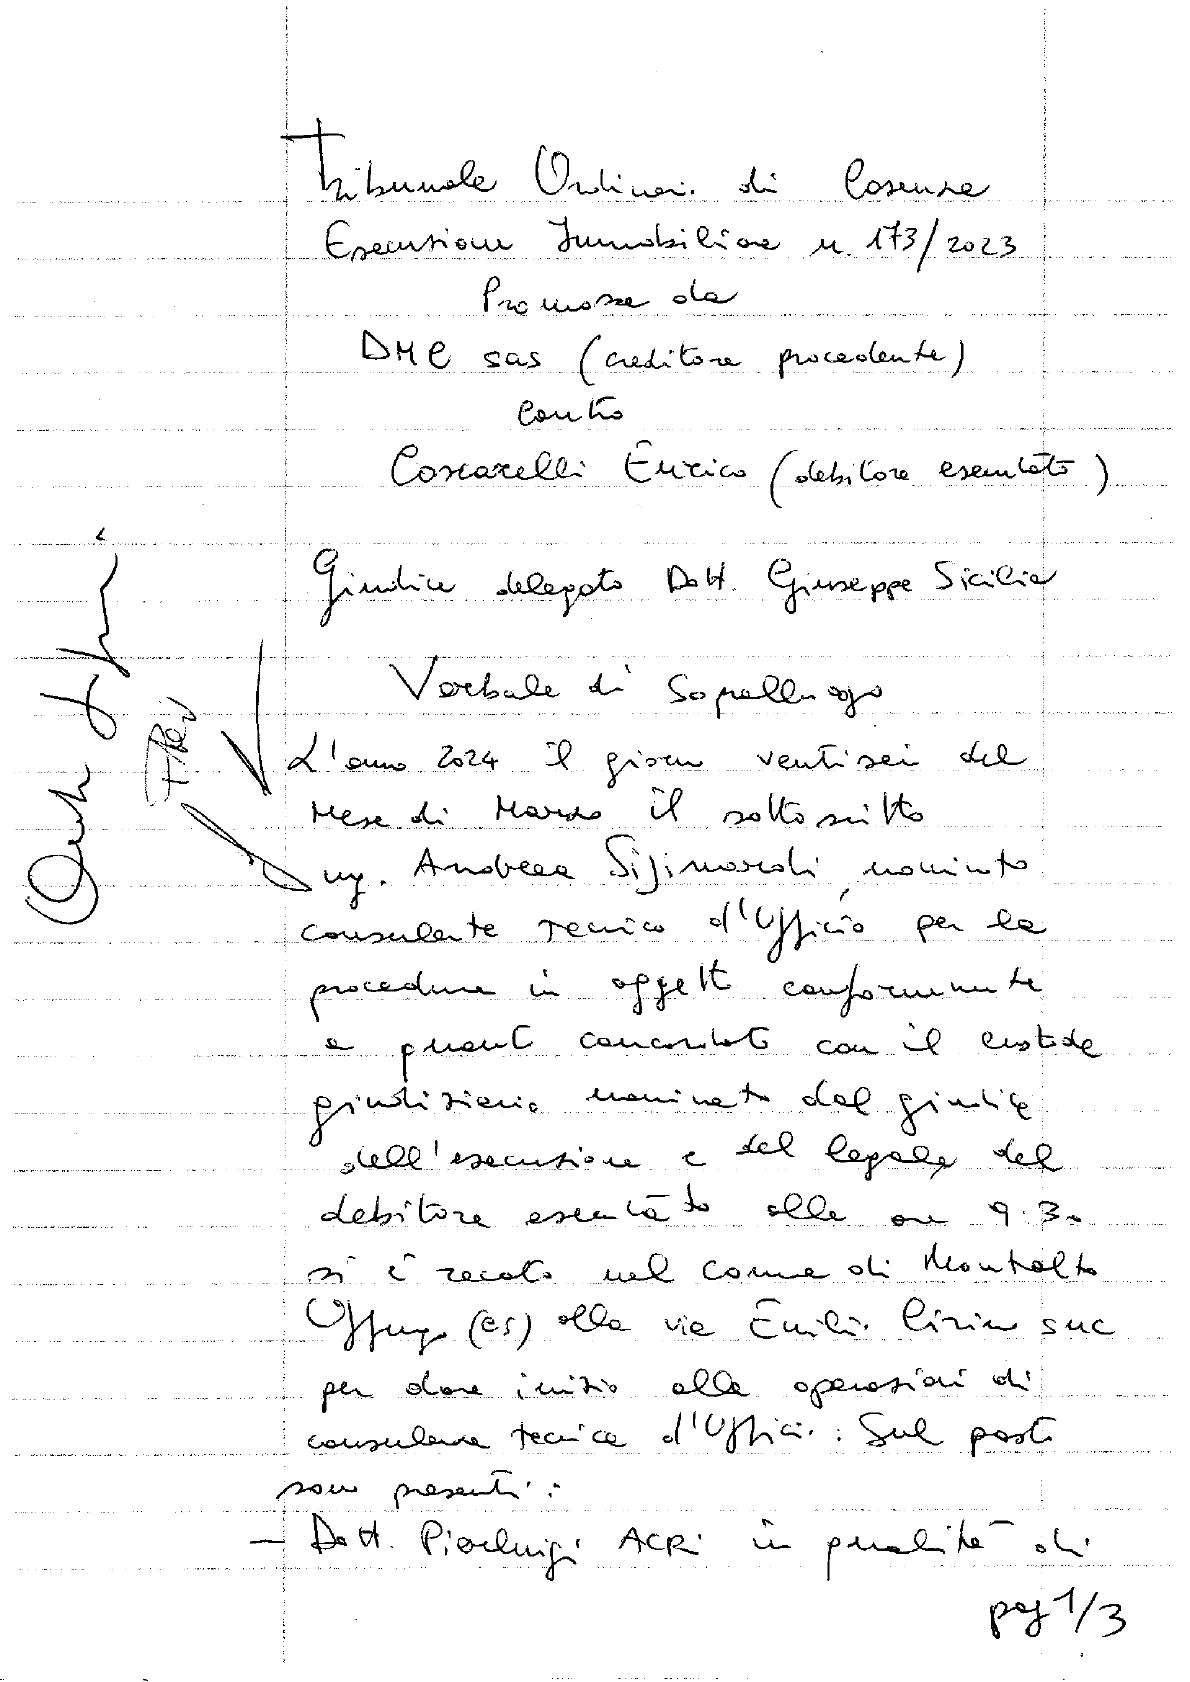 Tribunale Ordinari. di Cosenza
Esecuzione Immobiliare n. 173/2023
Promossa da
DMC sas (creditore procedente)
contro
Coscarelli Enrico (debitore esecutato)
Giudice delegato Dott. Giuseppe Sicilia
Verbale di Sopralluogo
L'anno 2024 il giorno ventisei del
mese di Marzo il sottoscritto
Ing. Andrea nominato
consulente tecnico d'Ufficio per la
procedura in oggetto conformemente
a quanto concordato con il custode
giudiziario nominato dal giudice
dell'esecuzione e del legale del
debitore esecutato alle ore 9.30
si è recato nel comune di Montalto
Uffugo (cs) alla via Emili. snc
per dare inizio alle operazioni di
consulenza tecnica d'Uffici.. Sul posto
sono presenti:
- Dott. Pierluigi ACRI in qualità di
pag 1/3